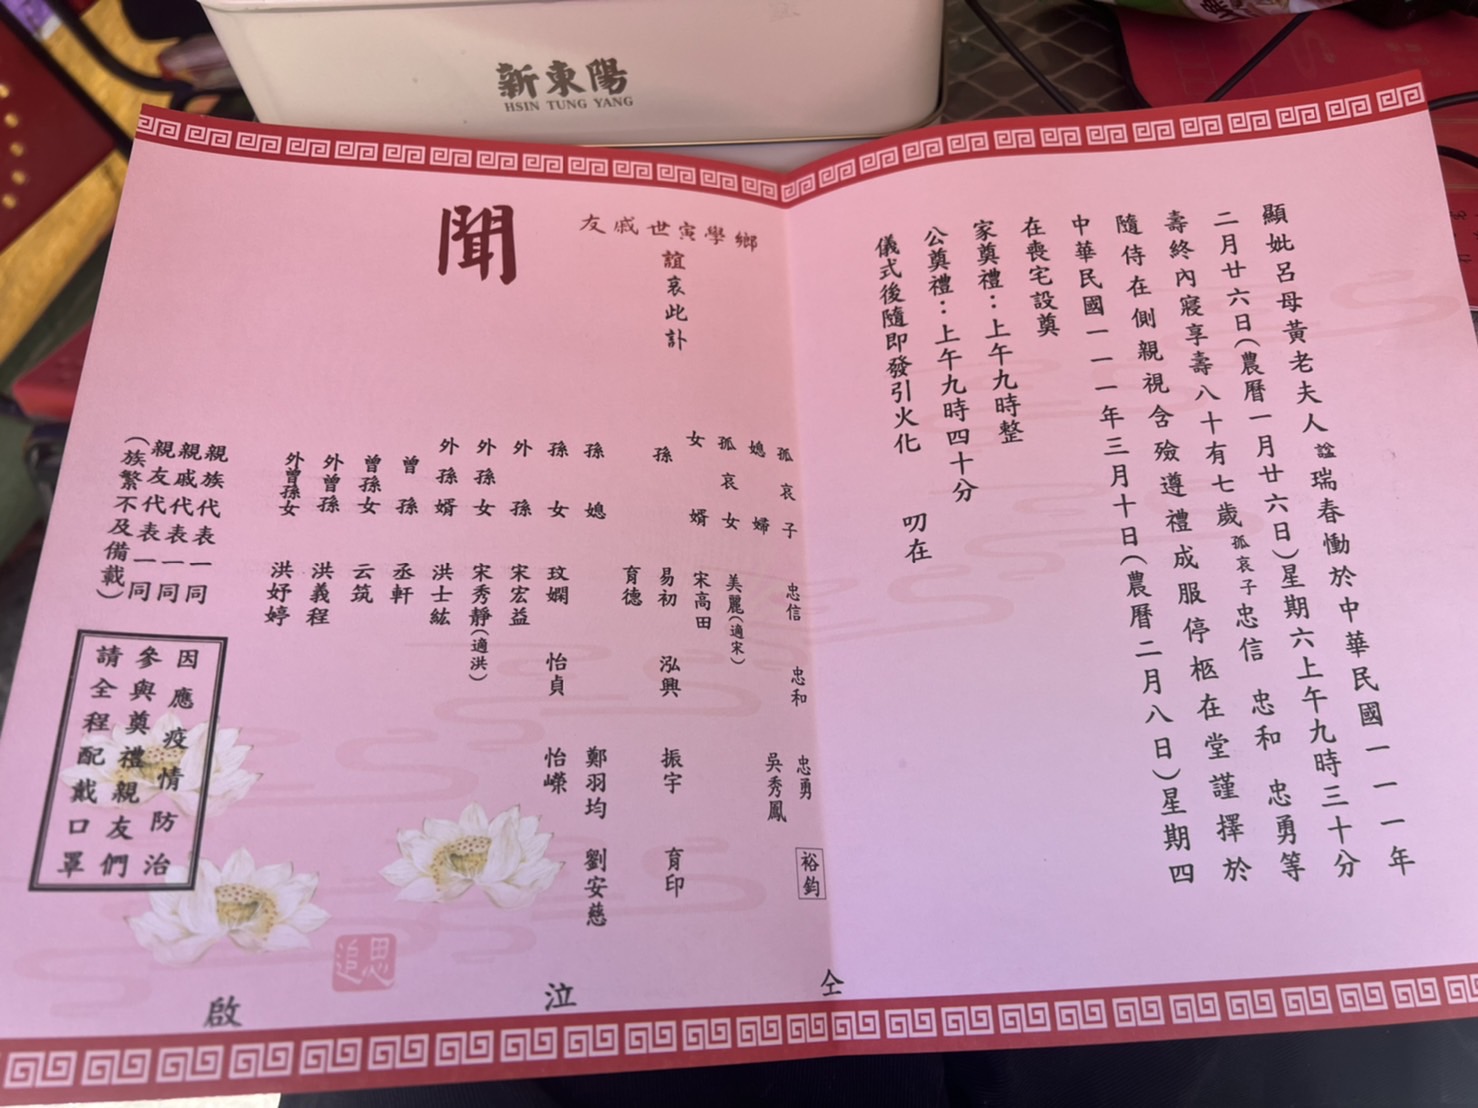 新東陽
HSIN TUNG YANG
顯妣呂母黃老夫人諡瑞春慟於中華民國一一一年
二月廿六日(農曆一月廿六日)星期六上午九時三十分
壽終內寢享壽八十有七歲孤哀子忠信 忠和 忠勇等
隨侍在側親視含殮遵禮成服停柩在堂謹擇於
中華民國一一一年三月十日(農曆二月八日)星期四
在喪宅設奠
家奠禮:上午九時整
公奠禮:上午九時四十分
儀式後隨即發引火化 叨在
鄉學寅世戚友
誼哀此訃
聞
孤哀子 忠信 忠和 忠勇 裕鈞
媳婦 吳秀鳳
孤哀女 美麗(適宋)
女婿 宋高田
孫 易初 泓興 振宇 育印
育德
孫媳 鄭羽均 劉安慈
孫女 玟嫻 怡貞 怡嶸
外孫 宋宏益
外孫女 宋秀靜(適洪)
外孫婿 洪士紘
曾孫 丞軒
曾孫女 云筑
外曾孫 洪義程
外曾孫女 洪妤婷
親族代表一同
親戚代表一同
親友代表一同
(族繁不及備載)
仝 泣 啟
因應疫情防治
參與奠禮親友們
請全程配戴口罩
追思